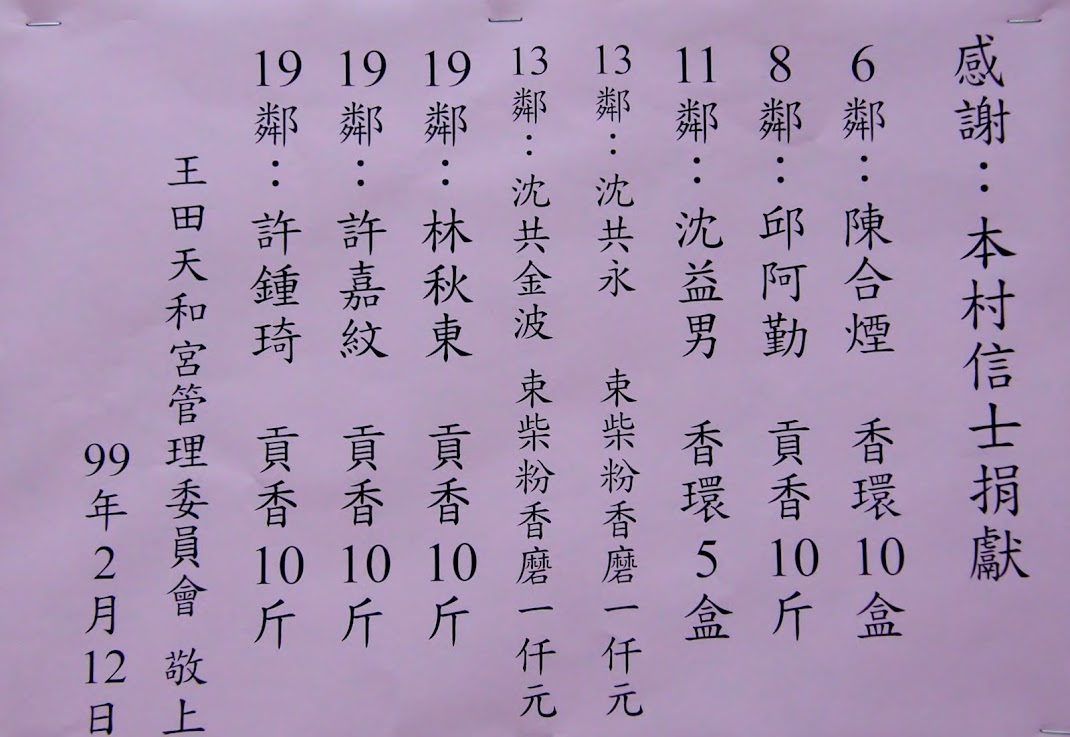 感謝：本村信士捐獻
6鄰：陳合煙 香環10盒
8鄰：邱阿勤 貢香10斤
11鄰：沈益男 香環5盒
13鄰：沈共永 束柴粉香磨一仟元
13鄰：沈共金波 束柴粉香磨一仟元
19鄰：林秋東 貢香10斤
19鄰：許嘉紋 貢香10斤
19鄰：許鍾琦 貢香10斤
王田天和宮管理委員會 敬上
99年2月12日